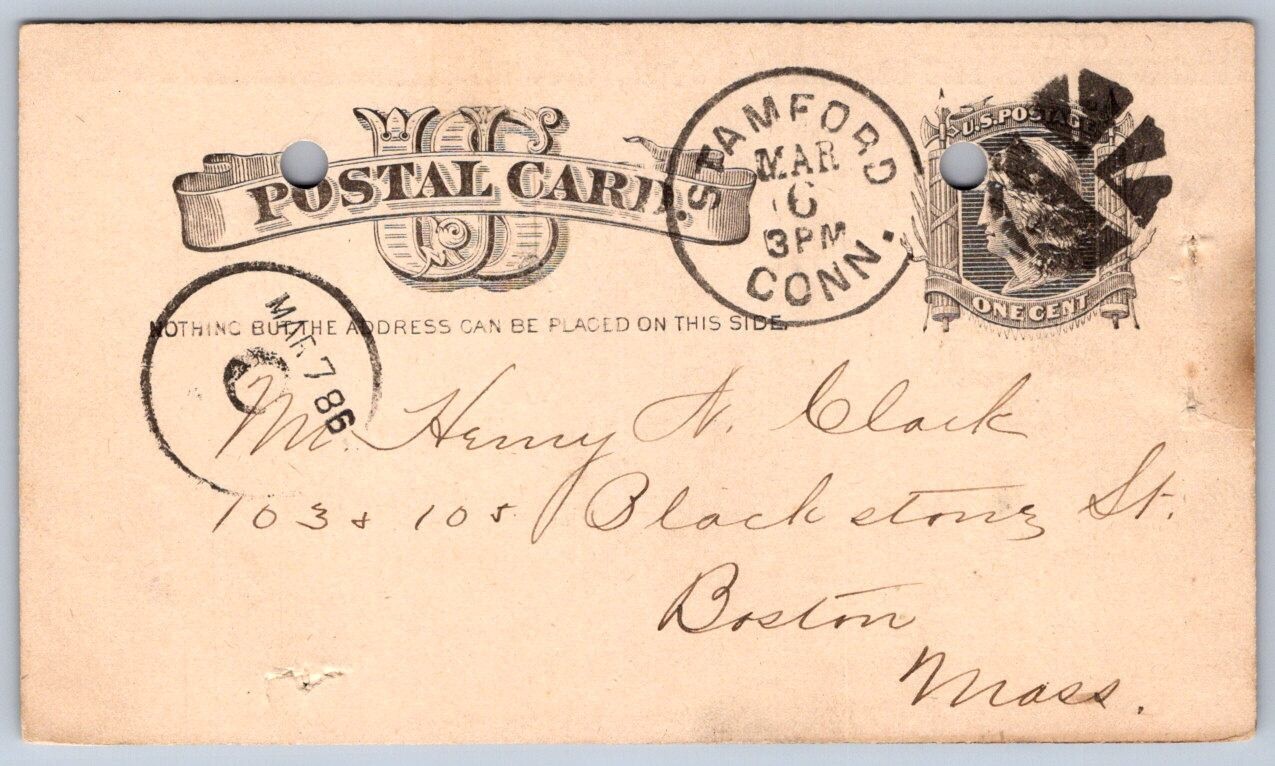 US
POSTAL CARD.
STAMFORD
MAR
6
3PM
CONN.
U.S. POSTAGE
ONE CENT
NOTHING BUT THE ADDRESS CAN BE PLACED ON THIS SIDE.
MAR 7 86
C
Mr. Henry N. Clark
103 & 105 Blackstone St.
Boston
Mass.